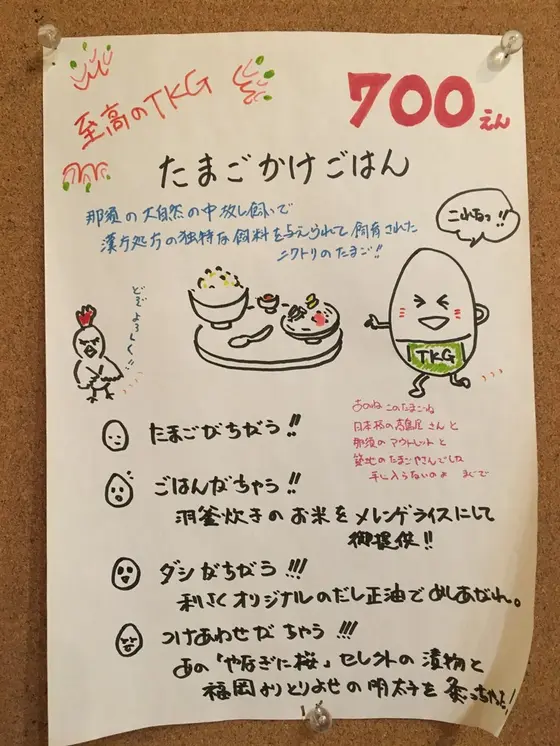 至高のTKG
700えん
たまごかけごはん
那須の大自然の中放し飼いで
漢方処方の独特な飼料を与えられて飼育された
ニワトリのたまご!!
どぞよろしく!!
TKG
あのねこのたまごね
日本橋の高島屋さんと
那須のアウトレットと
築地のたまごやさんでしか
手に入らないのよ まじで
たまごがちがう!!
ごはんがちゃう!!
羽釜炊きのお米をメレンゲライスにして
御提供!!
ダシがちがう!!!
利さくオリジナルのだし正油でめしあがれ。
つけあわせがちゃう!!!
あの「やなぎに桜」セレクトの漬物と
福岡よりとりよせの明太子を